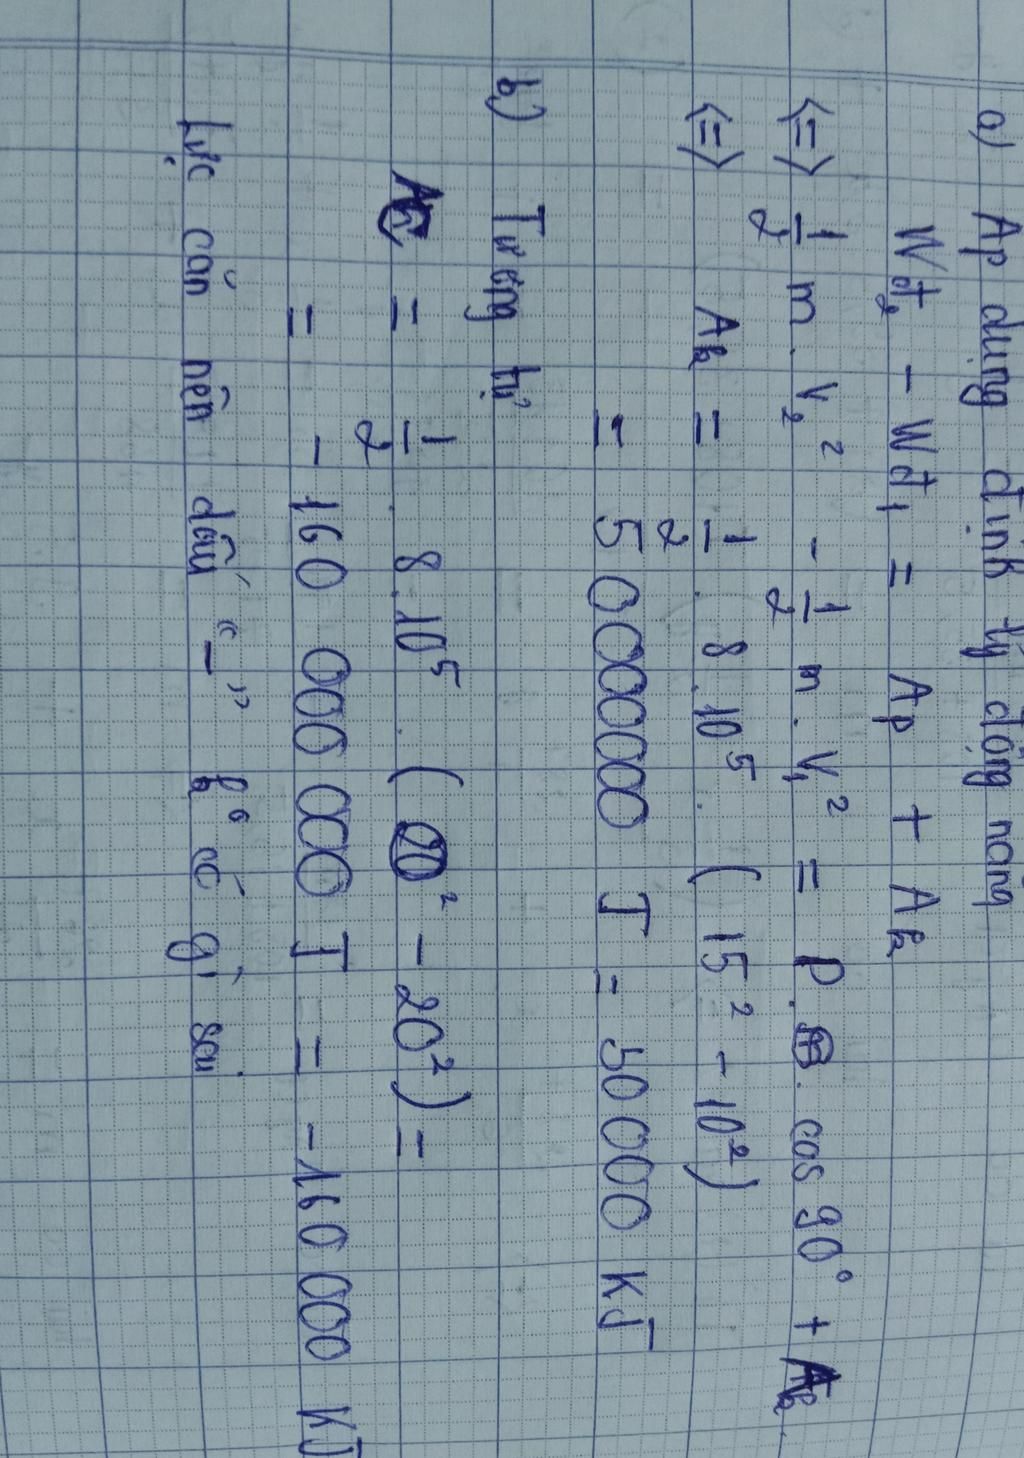 a) Áp dụng định lý động năng
Wđ₂ - Wđ₁ = Ap + Ak
<=> 1/2 m. v₂² - 1/2 m. v₁² = P. . cos 90° + Ak
<=> Ak = 1/2 . 8.10⁵ . (15² - 10²)
= 50000000 J = 50000 KJ
b) Tương tự
= 1/2 . 8.10⁵ . ( ² - 20²) =
= - 160 000 000 J = -160 000 KJ
Lực cản nên dấu "-" ko có gì sai.